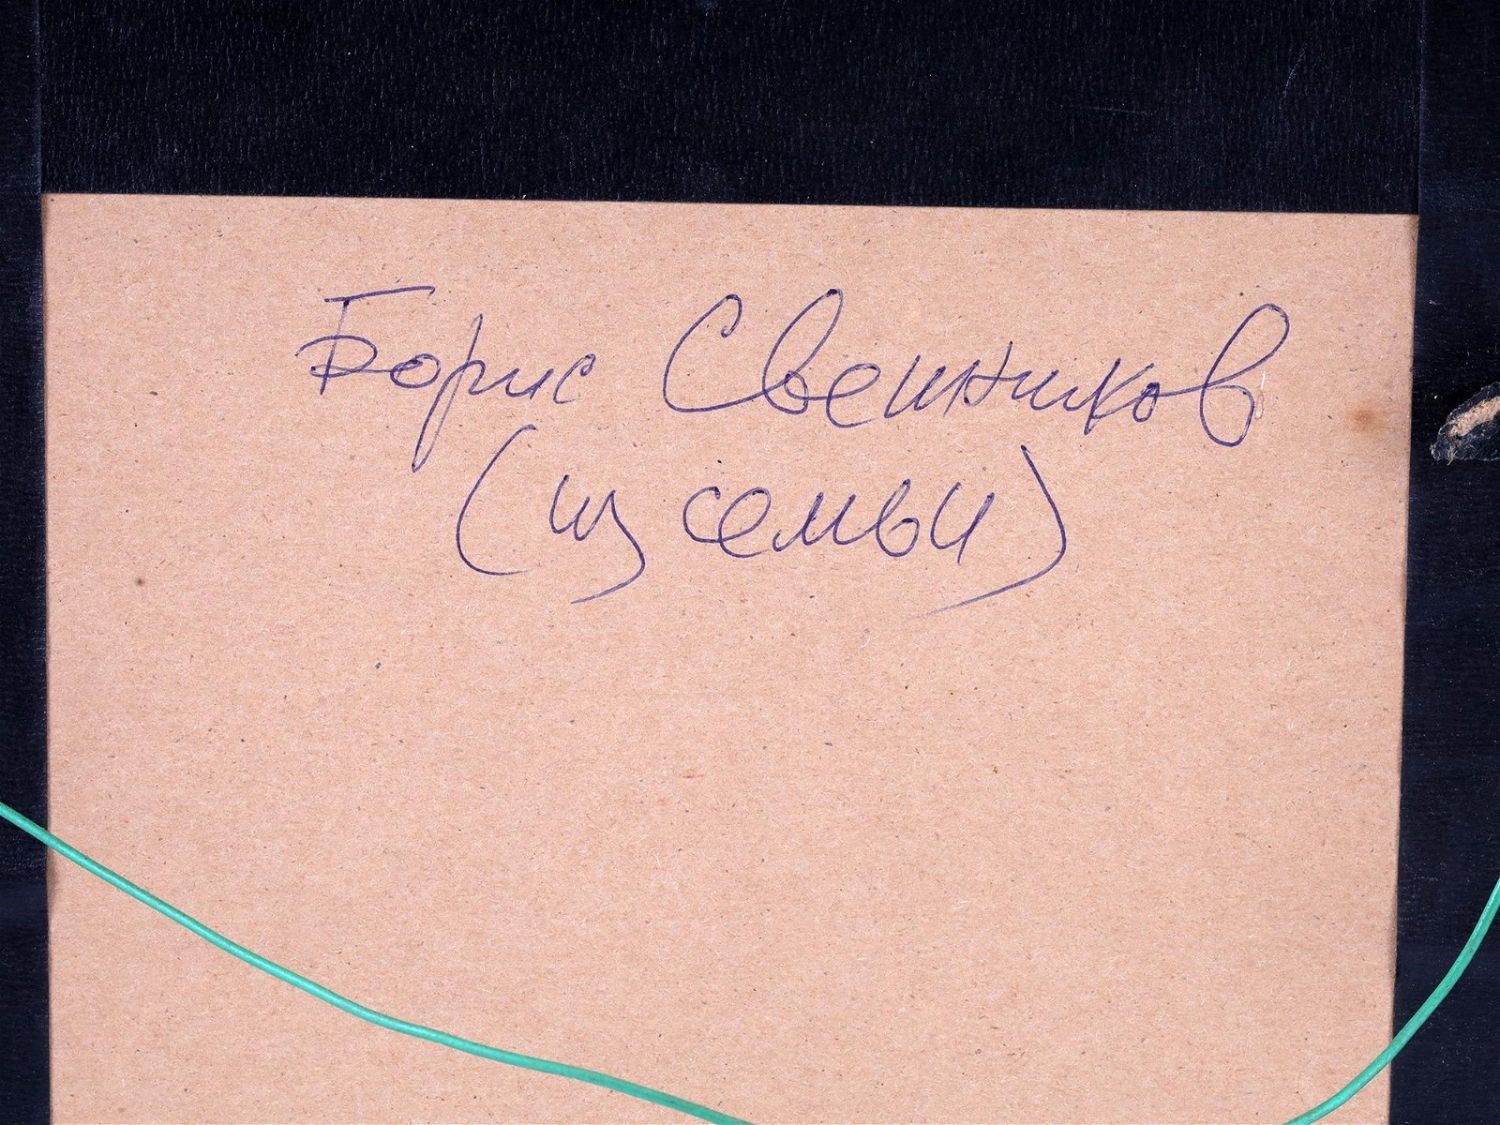 Борис Свешников
(из семьи)